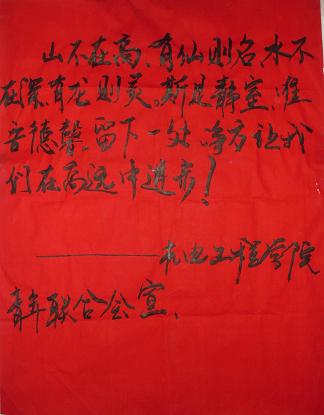 山不在高,有仙则名,水不
在深,有龙则灵,斯是静室,惟
吾德馨,留下一处净方让我
们在高远中进享!
————机电工程学院
青年联合会宣、